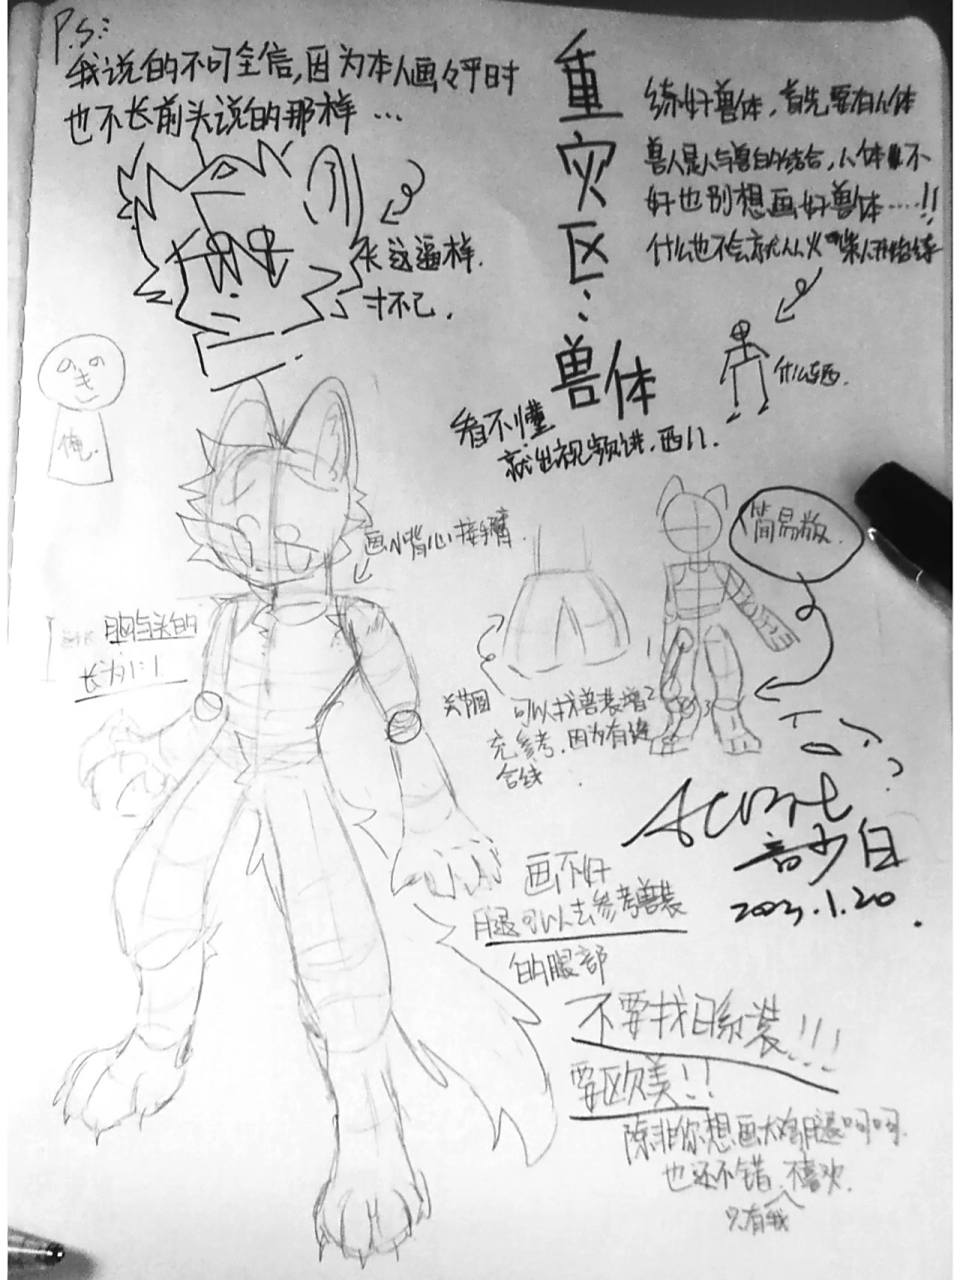 P.S:
我说的不可全信,因为本人画々平日时
也不长前头说的那样…
长这逼样.
才不已.
重灾区:兽体
练好兽体,首先要有人体
兽人是人与兽的结合,人体不
好也别想画好兽体……!!
什么也不会就从火柴人开始练
什么东西.
看不懂
就出视频讲.西八.
俺.
画小背心接手臂
简易版.
胸与头的
长为1:1
关节圈
可以找兽装增
充参考,因为有缝
合线.
2023.1.20
画不好
腿可以去参考兽装
的腿部
不要找日系装!!!
要欧美!!
除非你想画大鸡腿呵呵.
也还不错.不喜欢.
只有我